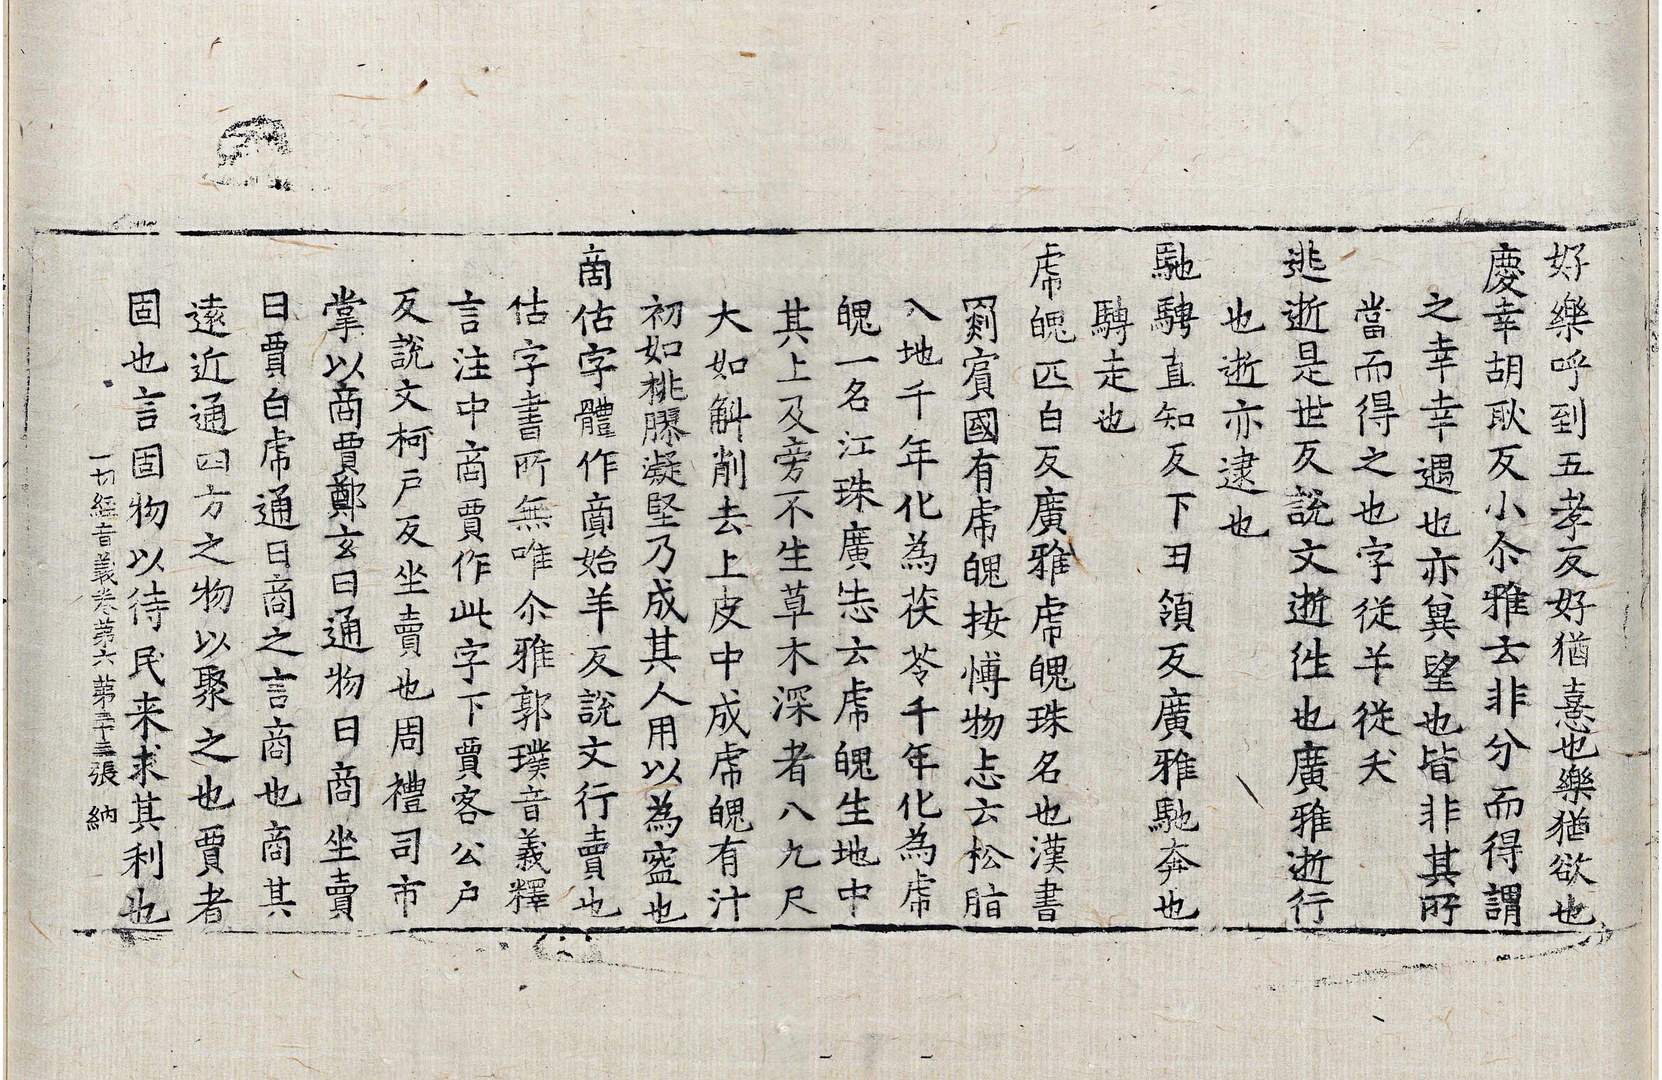 好樂呼到五孝反好猶憙也樂猶欲也
慶幸胡耿反小尒雅云非分而得謂
之幸幸遇也亦兾望也皆非其所
當而得之也字從羊從犬
逝逝是世反說文逝徃也廣雅逝行
也逝亦逮也
馳騁直知反下丑領反廣雅馳奔也
騁走也
虎魄匹白反廣雅虎魄珠名也漢書
罽賓國有虎魄按博物志云松脂
入地千年化為茯苓千年化為虎
魄一名江珠廣志云虎魄生地中
其上及旁不生草木深者八九尺
大如斛削去上皮中成虎魄有汁
初如桃膠凝堅乃成其人用以為盌也
啇估字體作啇始羊反說文行賣也
估字書所無唯尒雅郭璞音義釋
言注中商賈作此字下賈客公戶
反說文柯戶反坐賣也周禮司市
掌以商賈鄭玄曰通物曰商坐賣
曰賈白虎通曰商之言商也商其
遠近通四方之物以聚之也賈者
固也言固物以待民来求其利也
一切經音義卷第六 第二十三張 納